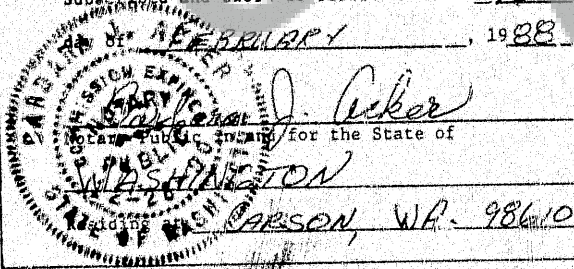 Subscribed and
day of FEBRUARY, 1988
Barbara J. Acker
Notary Public in and for the State of
WASHINGTON
Residing at CARSON, WA. 98610
BARBARA J. ACKER
COMMISSION EXPIRES
NOTARY
PUBLIC
STATE OF WASHINGTON